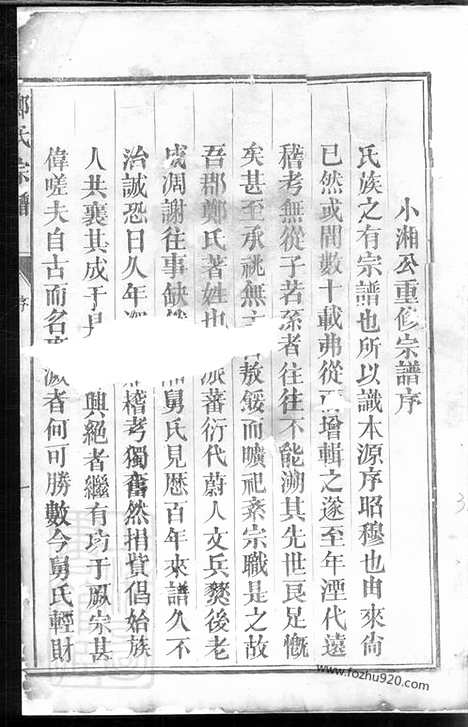 小湘公重修宗譜序
氏族之有宗譜也所以識本源序昭穆也由來尚
已然或間數十載弗從增輯之遂至年湮代遠
稽考無從子若孫者往往不能溯其先世良足慨
矣甚至承祧無主若敖餒而曠祀紊宗職是之故
吾郡鄭氏著姓也派蕃衍代蔚人文兵燹後老
成凋謝往事缺舅氏見歷百年來譜久不
治誠恐日久年稽考獨奮然捐貲倡始族
人共襄其成于是興絕者繼有功于厥宗甚
偉嗟夫自古而名者何可勝數今舅氏輕財
鄭氏宗譜
序
一
www.fozhu920.com